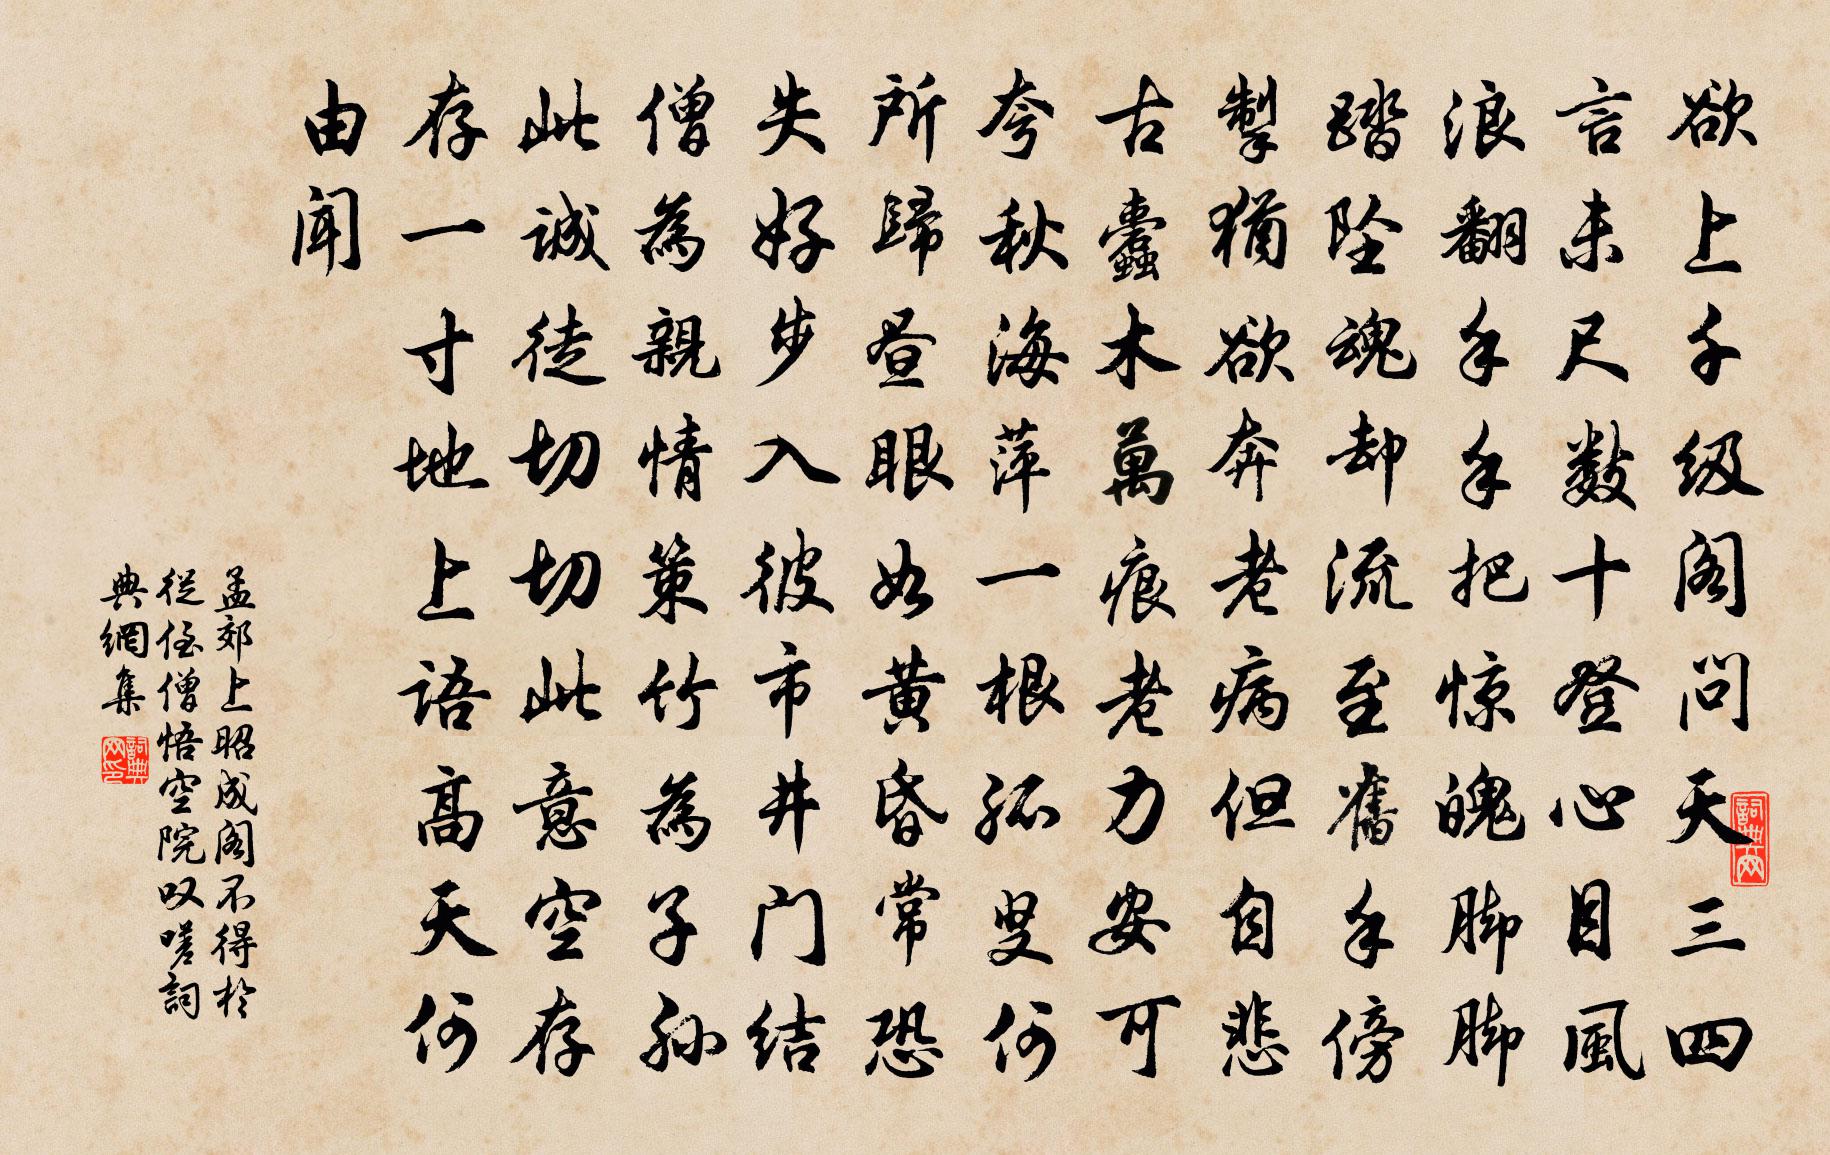 欲上千级阁问天三四
言未尺数十登心目風
浪翻手手把惊魄脚脚
踏坠魂却流至舊手傍
掣猶欲奔老病但自悲
古蠹木萬痕老力安可
夸秋海萍一根孤叟何
所歸昼眼如黄昏常恐
失好步入彼市井门结
僧為親情策竹為子孙
此诚徒切切此意空存
存一寸地上语高天何
由闻
孟郊上昭成阁不得於
從侄僧悟空院叹嗟詞
典網集
詞典网
詞典网印